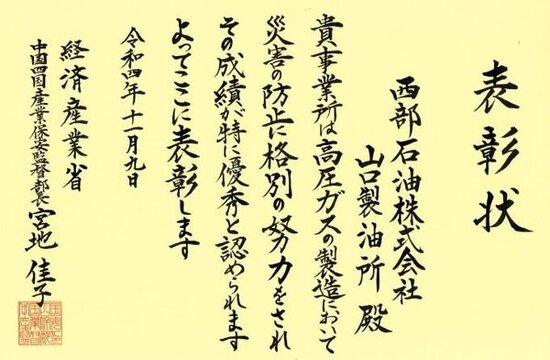 表彰状
西部石油株式会社
山口製油所殿
貴事業所は高圧ガスの製造において
災害の防止に格別の努力をされ
その成績が特に優秀と認められます
よってここに表彰します
令和四年十一月九日
経済産業省
中国四国産業保安監督部長 宮地佳子